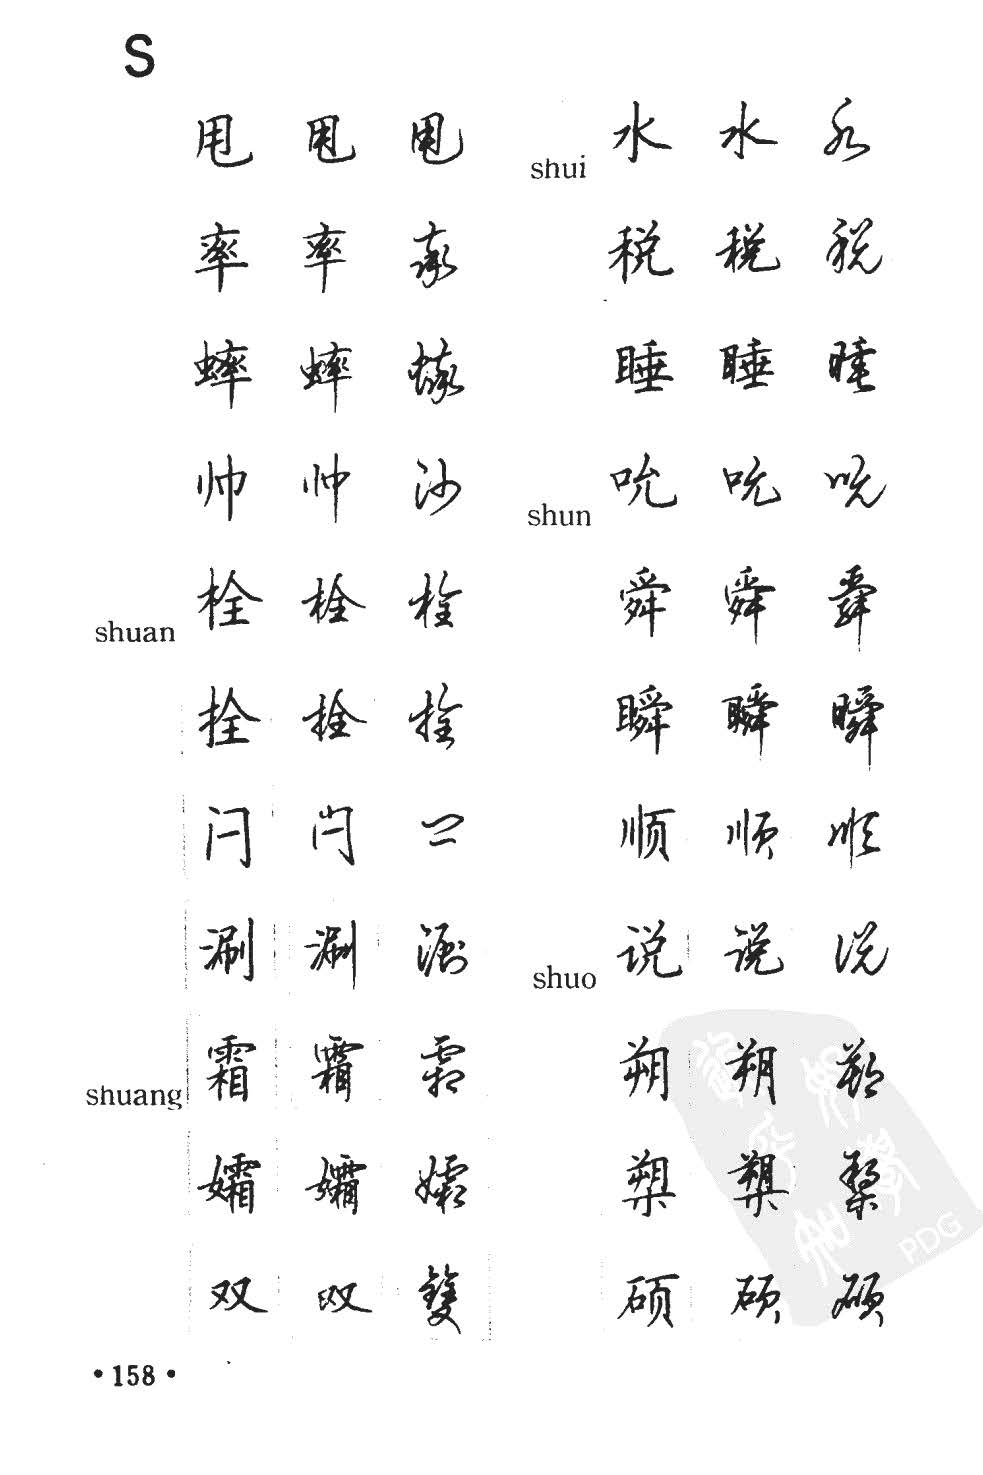 S
甩 甩 甩
率 率 率
蟀 蟀 蟀
帅 帅 帅
shuan 栓 栓 栓
拴 拴 拴
闩 闩 闩
涮 涮 涮
shuang 霜 霜 霜
孀 孀 孀
双 双 雙
shui 水 水 水
税 税 税
睡 睡 睡
shun 吮 吮 吮
舜 舜 舜
瞬 瞬 瞬
顺 顺 顺
shuo 说 说 说
朔 朔 朔
槊 槊 槊
硕 硕 硕
PDG
·158·